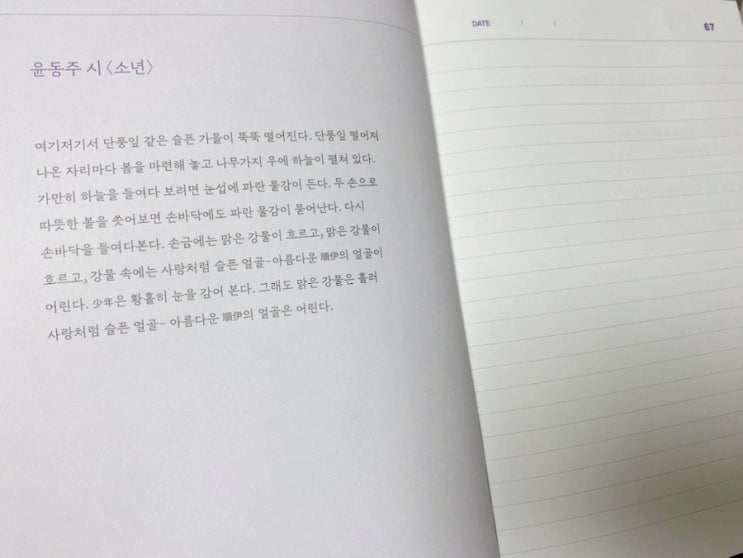 윤동주 시 〈소년〉
여기저기서 단풍잎 같은 슬픈 가을이 뚝뚝 떨어진다. 단풍잎 떨어져
나온 자리마다 봄을 마련해 놓고 나무가지 우에 하늘이 펼쳐 있다.
가만히 하늘을 들여다 보려면 눈섭에 파란 물감이 든다. 두 손으로
따뜻한 볼을 쏫어보면 손바닥에도 파란 물감이 묻어난다. 다시
손바닥을 들여다본다. 손금에는 맑은 강물이 흐르고, 맑은 강물이
흐르고, 강물 속에는 사랑처럼 슬픈 얼골-아름다운 順伊의 얼골이
어린다. 少年은 황홀히 눈을 감어 본다. 그래도 맑은 강물은 흘러
사랑처럼 슬픈 얼골- 아름다운 順伊의 얼골은 어린다.
DATE / / 67